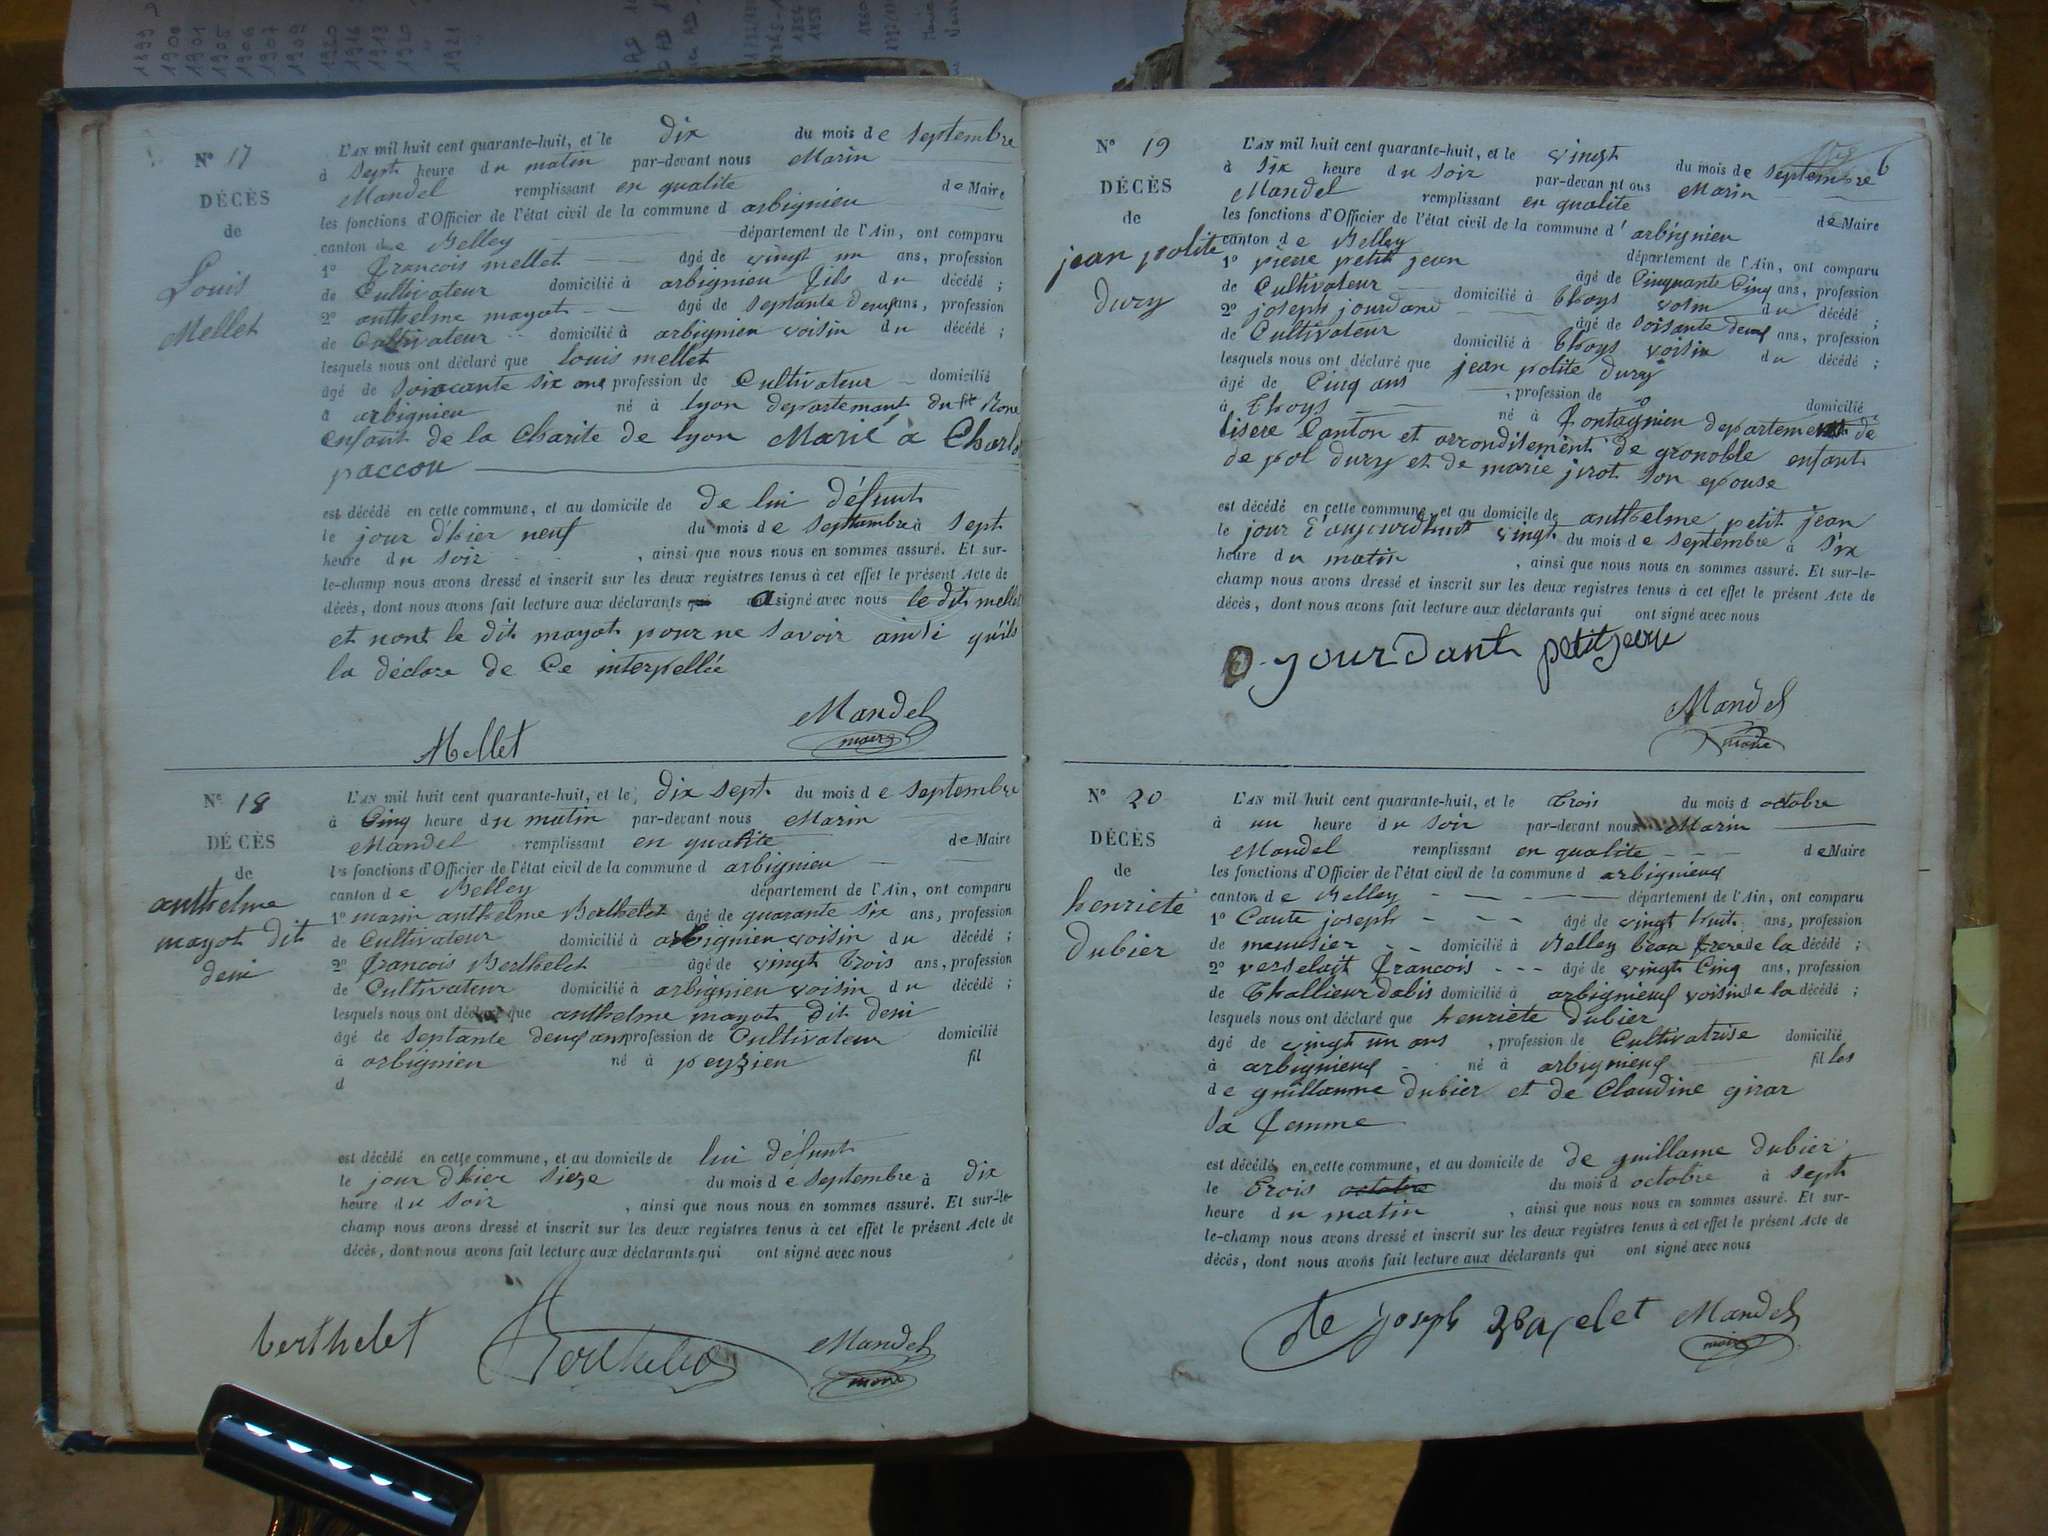 1899
1900
1901
1905
1906
1907
1909
1918
1920
1921
N° 17
DÉCÈS
de
Louis
Mellet
L'AN mil huit cent quarante-huit, et le dix du mois de septembre
à sept heure du matin par-devant nous Marin
Mandel remplissant en qualite de Maire
les fonctions d'Officier de l'état civil de la commune d arbignieu
canton de Belley département de l'Ain, ont comparu
1° francois mellet âgé de vingt un ans, profession
de Cultivateur domicilié à arbignieu fils du décédé ;
2° anthelme mayot âgé de septante deux ans, profession
de Cultivateur domicilié à arbignieu voisin du décédé ;
lesquels nous ont déclaré que louis mellet
âgé de soixante six ans profession de Cultivateur domicilié
à arbignieu né à lyon departemant du Rone
enfant de la Charite de lyon Marié a Charlo
paccou
est décédé en cette commune, et au domicile de de lui défunt
le jour d'hier neuf du mois de septembre à sept
heure du soir , ainsi que nous nous en sommes assuré. Et sur-
le-champ nous avons dressé et inscrit sur les deux registres tenus à cet effet le présent Acte de
décès, dont nous avons fait lecture aux déclarants qui a signé avec nous le dit mellet
et nont le dit mayot pour ne savoir ainsi qu'ils
la déclare de Ce interpellée
Mellet Mandel
maire
N° 18
DÉCÈS
de
anthelme
mayot dit
deni
L'AN mil huit cent quarante-huit, et le dix sept du mois de septembre
à Cinq heure du matin par-devant nous Marin
Mandel remplissant en qualite de Maire
les fonctions d'Officier de l'état civil de la commune d arbignieu
canton de Belley département de l'Ain, ont comparu
1° marin anthelme Berthelet âgé de quarante six ans, profession
de Cultivateur domicilié à arbignieu voisin du décédé ;
2° francois Berthelet âgé de vingt trois ans, profession
de Cultivateur domicilié à arbignieu voisin du décédé ;
lesquels nous ont déclaré que anthelme mayot dit deni
âgé de septante deux ans profession de Cultivateur domicilié
à arbignieu né à peyzieu fil
d
est décédé en cette commune, et au domicile de lui défunt
le jour d'hier sieze du mois de septembre à dix
heure du soir , ainsi que nous nous en sommes assuré. Et sur-le-
champ nous avons dressé et inscrit sur les deux registres tenus à cet effet le présent Acte de
décès, dont nous avons fait lecture aux déclarants qui ont signé avec nous
berthelet Berthelet Mandel
maire
N° 19
DÉCÈS
de
jean polite
dury
L'AN mil huit cent quarante-huit, et le vingt du mois de septembre
à six heure du soir par-devan nt ous Marin
Mandel remplissant en qualite de Maire
les fonctions d'Officier de l'état civil de la commune d' arbignieu
canton de Belley département de l'Ain, ont comparu
1° pierre petit jean âgé de Cinquante Cinq ans, profession
de Cultivateur domicilié à thoys voisin du décédé ;
2° joseph jourdand âgé de soisante deux ans, profession
de Cultivateur domicilié à thoys voisin du décédé ;
lesquels nous ont déclaré que jean polite dury
âgé de Cinq ans , profession de domicilié
à thoys né à fontagnieu departement de
lisere Canton et arrondisement de gronoble enfant
de pol dury et de marie jirot son epouse
est décédé en cette commune, et au domicile de anthelme petit jean
le jour d'aujourdhuit vingt du mois de septembre à six
heure du matin , ainsi que nous nous en sommes assuré. Et sur-le-
champ nous avons dressé et inscrit sur les deux registres tenus à cet effet le présent Acte de
décès, dont nous avons fait lecture aux déclarants qui ont signé avec nous
jourdant petitjean
Mandel
maire
N° 20
DÉCÈS
de
henriete
dubier
L'AN mil huit cent quarante-huit, et le trois du mois d octobre
à un heure du soir par-devant nous Marin
Mandel remplissant en qualite de Maire
les fonctions d'Officier de l'état civil de la commune d arbignieux
canton de Belley département de l'Ain, ont comparu
1° Caute joseph âgé de vingt huit ans, profession
de meunsier domicilié à Belley beau frere de la décédé ;
2° verselait francois âgé de vingt Cinq ans, profession
de thallieur dabis domicilié à arbignieux voisin de la décédé ;
lesquels nous ont déclaré que henriete dubier
âgé de vingt un ans , profession de Cultivatrise domicilié
à arbignieux né à arbignieux fil les
de guillaume dubier et de Claudine girar
sa femme
est décédé en cette commune, et au domicile de de guillame dubier
le trois octobre du mois d octobre à sept
heure du matin , ainsi que nous nous en sommes assuré. Et sur-
le-champ nous avons dressé et inscrit sur les deux registres tenus à cet effet le présent Acte de
décès, dont nous avons fait lecture aux déclarants qui ont signé avec nous
joseph Mandel
maire